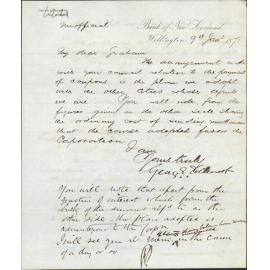 Unofficial
Bank of New Zealand,
Wellington 9th 187
My dear Graham
The arrangement made
with your council relative to the payment
of coupons is the plan we adopt
with the other Cities whose agents
we are. You will note from the
figures given on the other side showing
the ordinary cost of sending remittances
that the course adopted favors the
Corporation
I am
Yours truly
You will note that apart from the
question of interest which forms the
bulk of the
other side, the plan adopted is
advantageous to the
I will see you at in the course
of a day or so